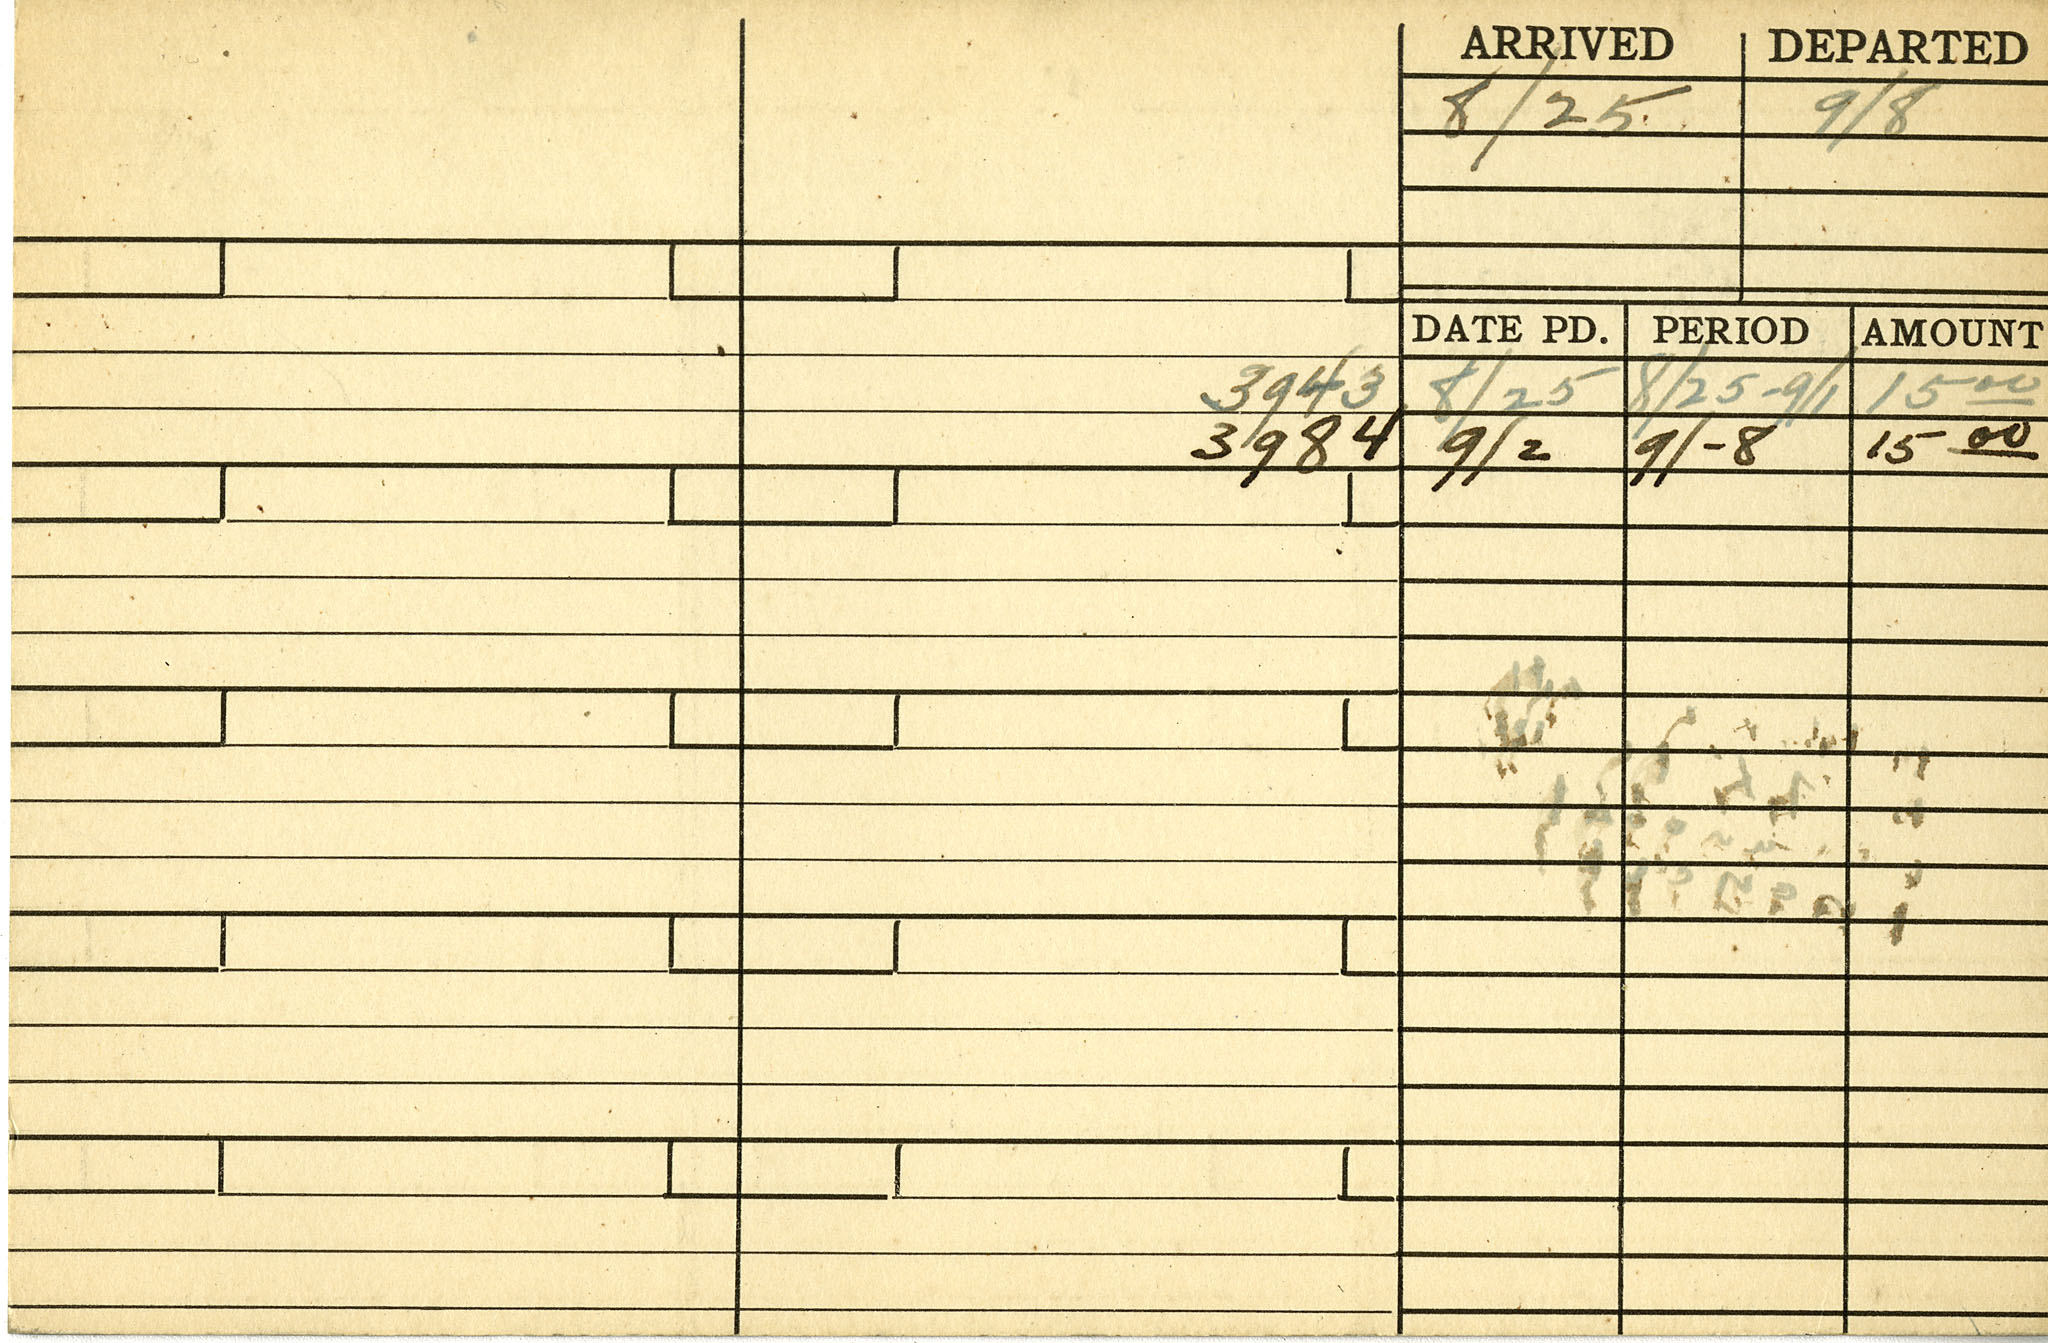 ARRIVED DEPARTED
8/25 9/8
DATE PD. PERIOD AMOUNT
3943 8/25 8/25-9/1 15 00
3984 9/2 9/1-8 15 00